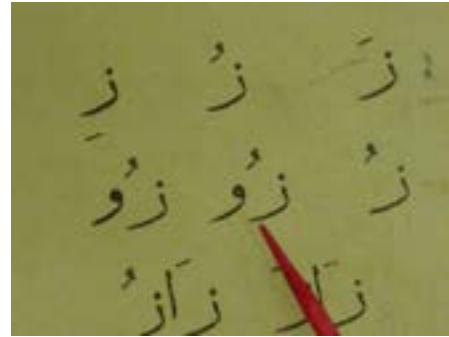 زَ زُ زِ
زُ زُو زُو
زَازَ زَازُ